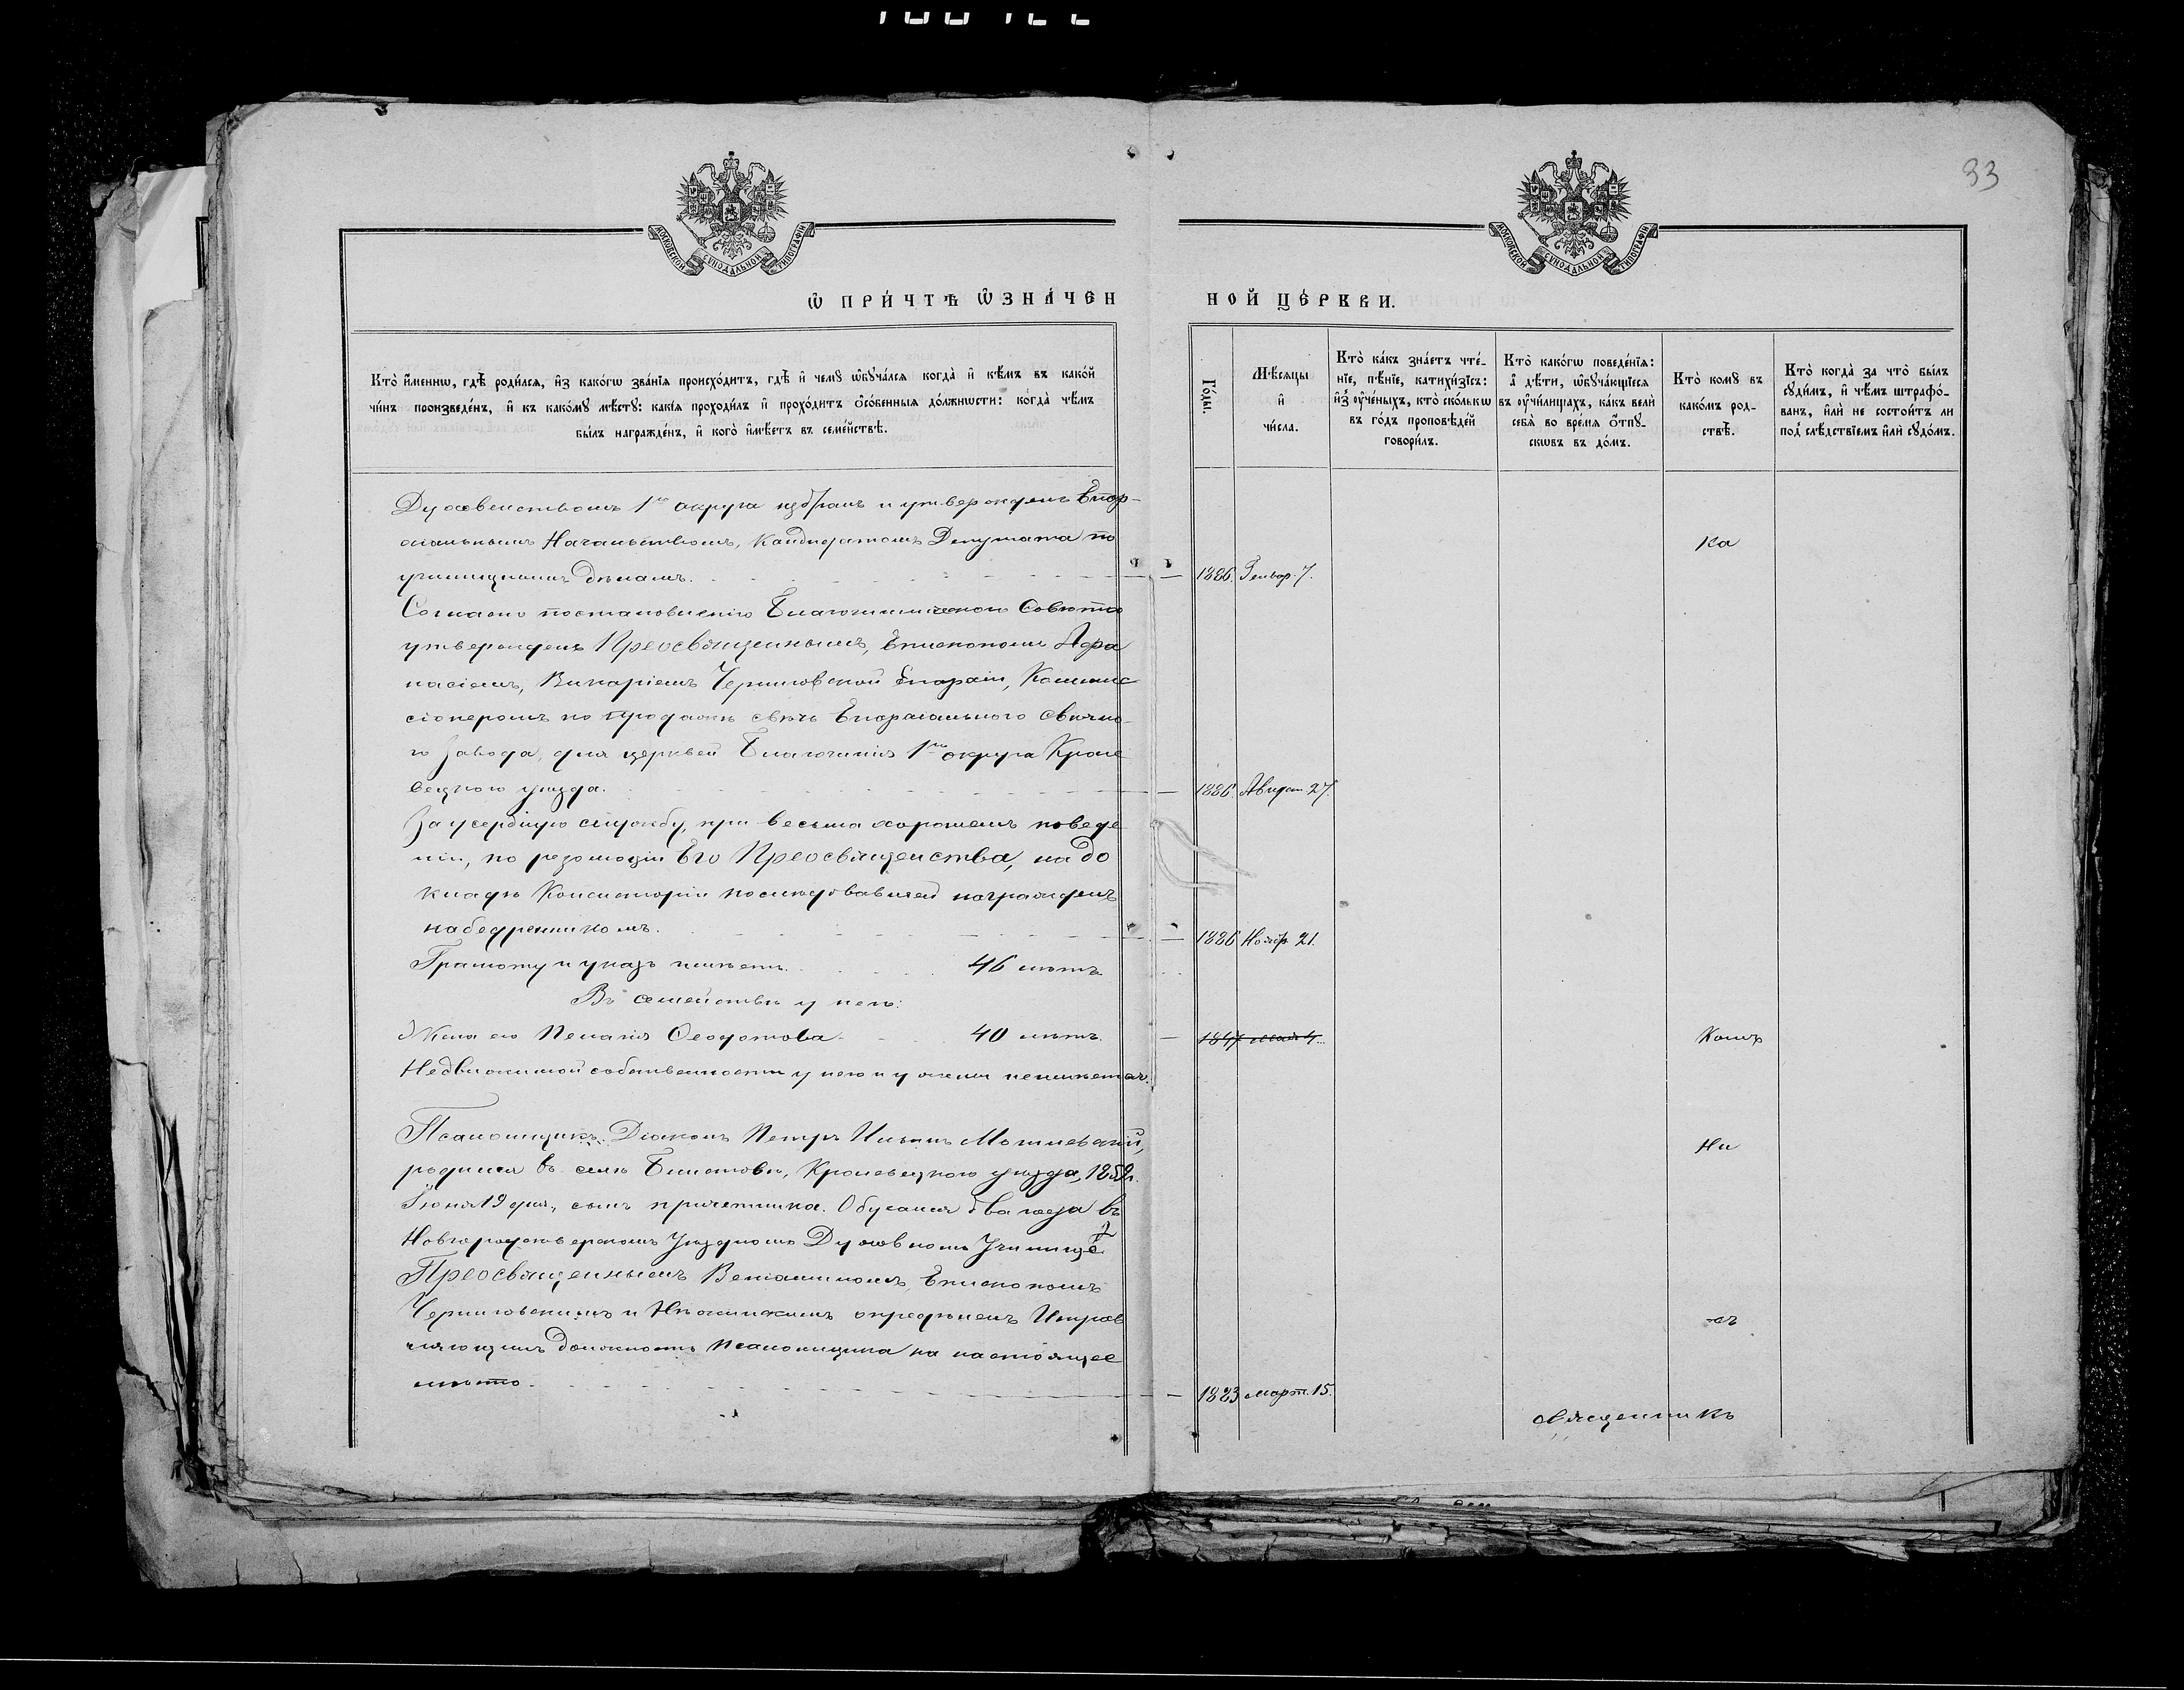 33
МОСКОВСКОЙ СѴНОДАЛЬНОЙ ТИПОГРАФІИ
МОСКОВСКОЙ СѴНОДАЛЬНОЙ ТИПОГРАФІИ
Ѿ ПРИ́ЧТѢ ѠЗНА́ЧЕН
НОЙ ЦЕ́РКВИ.
Кто̀ и҆́меннѡ, гдѣ̀ роди́лсѧ, и҆з како́гѡ зва́нїѧ происхо́дитъ, гдѣ̀ и҆ чемꙋ̀ ѡ҆бꙋча́лсѧ когда̀ и҆ кѣ́мъ въ како́й
чи́нъ произведе́нъ, и҆ къ како́мꙋ мѣ́стꙋ: какі́ѧ проходи́лъ и҆ прохо́дитъ ѻ҆со́бенныѧ до́лжнѡсти: когда̀ чѣ́мъ
бы́лъ награжде́нъ, и҆ кого̀ и҆мѣ́етъ въ семе́йствѣ.
Го́ды.
Мѣ́сѧцы
и҆
чи́сла.
Кто̀ ка́къ зна́етъ чте́-
нїе, пѣ́нїе, катихи́зїсъ:
и҆з̾ ᲂу҆че́ныхъ, кто̀ ско́лькѡ
въ го́дъ проповѣ́дей
говори́лъ.
Кто̀ како́гѡ поведе́нїѧ:
а҆ дѣ́ти, ѡ҆бꙋча́ющїесѧ
въ ᲂу҆чи́лищахъ, ка́къ велѝ
себѧ̀ во вре́мѧ ѻ҆́тпꙋ-
скѡвъ въ до́мъ.
Кто̀ комꙋ̀ въ
како́мъ род-
ствѣ̀.
Кто̀ когда̀ за что̀ бы́лъ
сꙋди́мъ, и҆ чѣ́мъ штрафо́-
ванъ, и҆лѝ не состои́тъ ли
под̾ слѣ́дствїемъ и҆лѝ сꙋдо́мъ.
Духовенствомъ 1го округа избранъ и утвержденъ Епар-
хіальнымъ Начальствомъ, Кандидатомъ Депутата по
ка
училищнымъ дѣламъ.
1886. Генвар. 7.
Согласно постановленію Благочинническаго Совѣта
утвержденъ Преосвященнымъ, Епископомъ Афа
насіемъ, Викаріемъ Черниговской Епархіи, Коммис
сіонеромъ по продажѣ свѣчъ Епархіальнаго свѣчно-
го завода, для церквей Благочинія 1го округа Кроле
вецкого уѣзда.
1886. Август 27.
За усердную службу, при весьма хорошемъ поведе
ніи, по резолюціи Его Преосвященства, на до
кладѣ Консисторіи послѣдовавшей награжденъ
набедренникомъ.
1886 Ноябр 21.
Грамоту и указъ имѣетъ. 46 лѣтъ
Въ семействѣ у него:
Жена его Пелагія Ѳеодотова 40 лѣтъ.
1847 мая 4.
Недвижимой собственности у него и у жены не имѣется.
Псаломщикъ Діаконъ Петръ Ильинъ
Ни
родился въ селѣ Кролевецкого уѣзда, 1852г.
Іюня 19 дня, сынъ причетника. Обучался два года въ
Новгородсѣверскомъ Уѣздномъ Духовномъ Училищѣ
Преосвященнымъ Веніаминомъ Епископомъ
Черниговскимъ и Нѣжинскимъ опредѣленъ Исправ
съ
ляющимъ должность Псаломщика на настоящее
мѣсто.
1883 март. 15.
священникъ